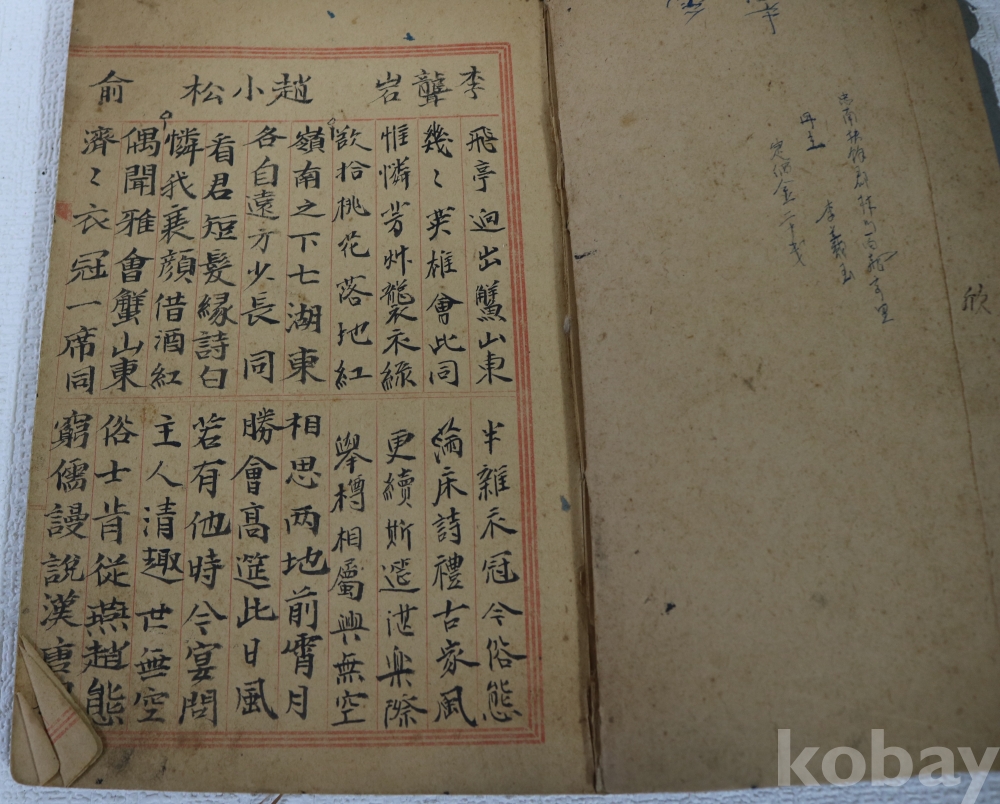 欣
忠南扶餘郡
冊主 李義玉
金二十
李聾岩 趙小松 俞
飛亭迥出山東 半雜衣冠今俗態
幾〻英雄會此同 滿床詩禮古家風
惟憐芳艸襲衣綠 更續斯筵湛樂際
欲拾桃花落地紅 擧樽相屬興無空
嶺南之下七湖東 相思两地前宵月
各自遠方少長同 勝會高筵此日風
看君短髮緣詩白 若有他時今宴問
憐我衰顔借酒紅 主人清趣世無空
偶聞雅會蟹山東 俗士肯從燕趙態
濟〻衣冠一席同 窮儒謾說漢唐
kobay